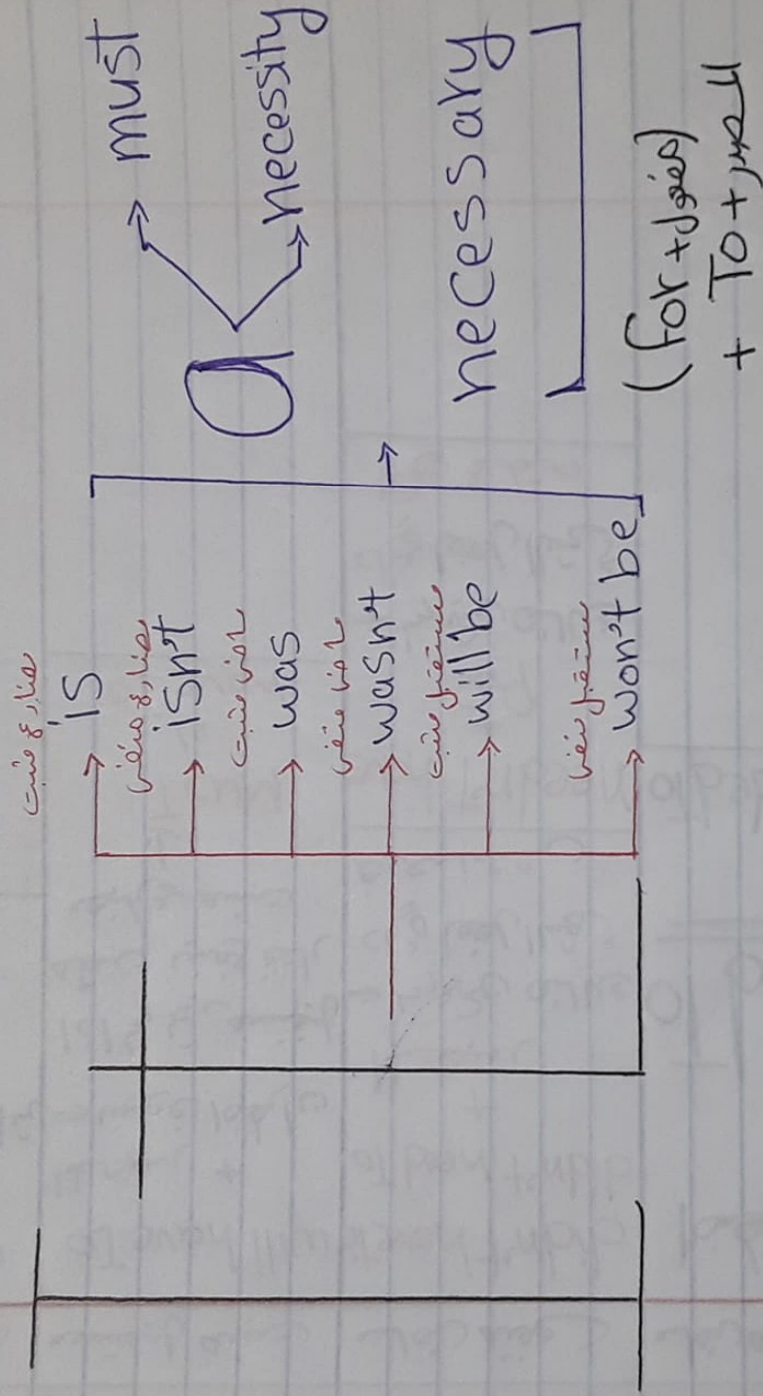 It
مضارع مثبت
is
مضارع منفى
isn't
ماضى مثبت
was
ماضى منفى
wasn't
مستقبل مثبت
will be
مستقبل منفى
won't be
a
must
necessity
necessary
(for + مفعول)
+ To + المصدر